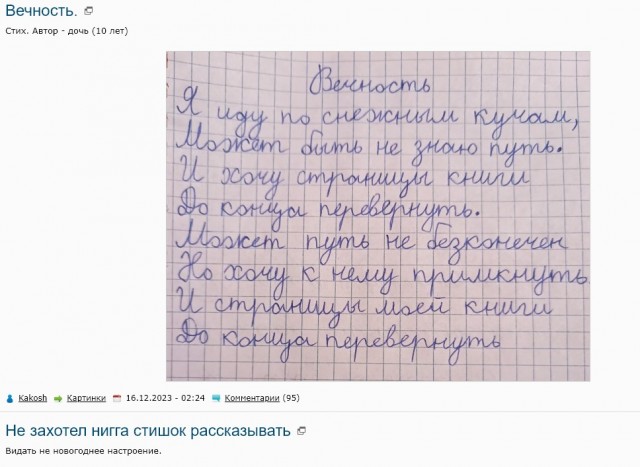 Вечность.
Стих. Автор - дочь (10 лет)
Вечность
Я иду по снежным кучам,
Может быть не знаю путь.
И хочу страницы книги
До конца перевернуть.
Может путь не безконечен
Но хочу к нему примкнуть
И страницы моей книги
До конца перевернуть
Kakosh Картинки 16.12.2023 - 02:24 Комментарии (95)
Не захотел нигга стишок рассказывать
Видать не новогоднее настроение.